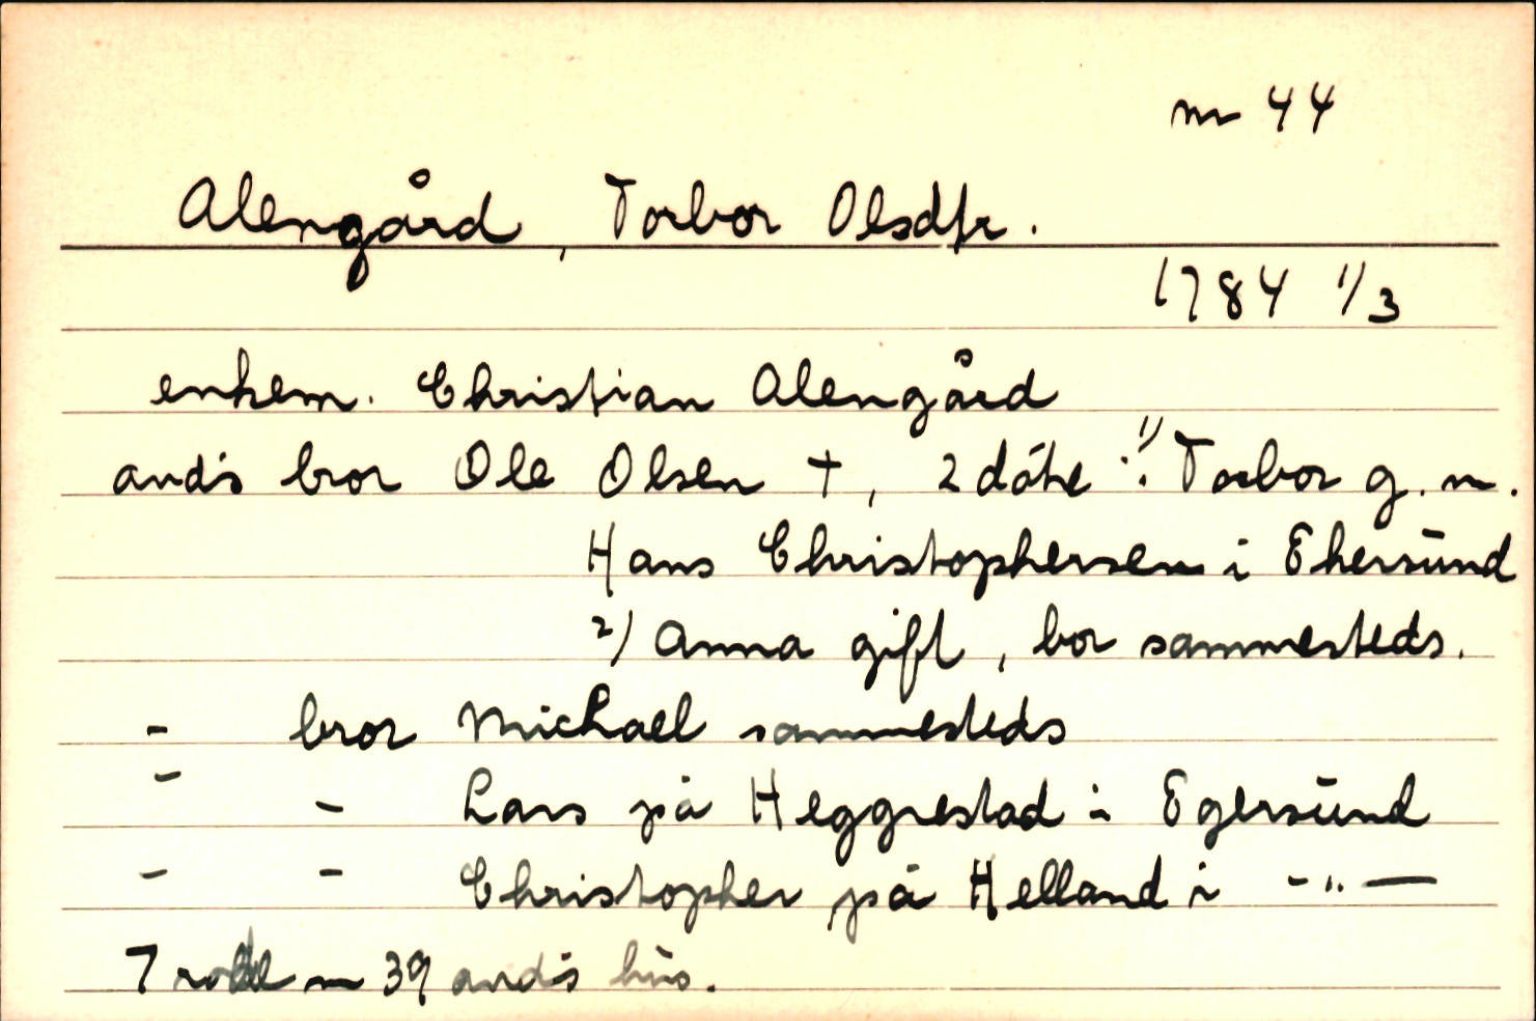 nr 44
Alengård, Torbor Olsdtr.
1784 1/3
enkem. Christian Alengård
avd's bror Ole Olsen †, 2 døtre: 1) Torbor g. m.
Hans Christophersen i Ekersund
2) Anna gift, bor sammesteds.
- bror Michael sammesteds
- - Lars på Heggrestad i Egersund
- - Christopher på Helland i -"-
7 rode nr 39 avd's hus.